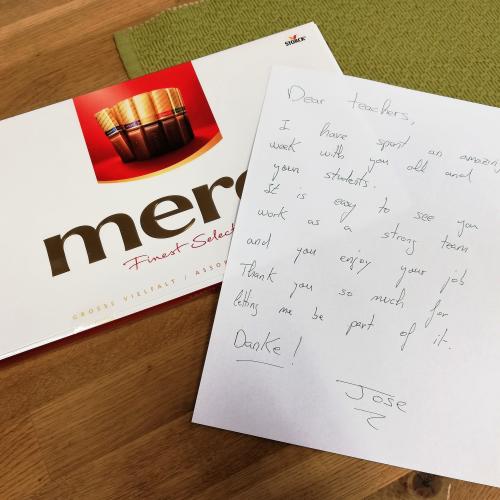 STORCK
merc
Finest Select
GROSSE VIELFALT / ASSOR
Dear teachers,
I have spent an amazing
week with you all and
your students.
It is easy to see you
work as a strong team
and you enjoy your job
Thank you so much for
letting me be part of it.
Danke!
Jose